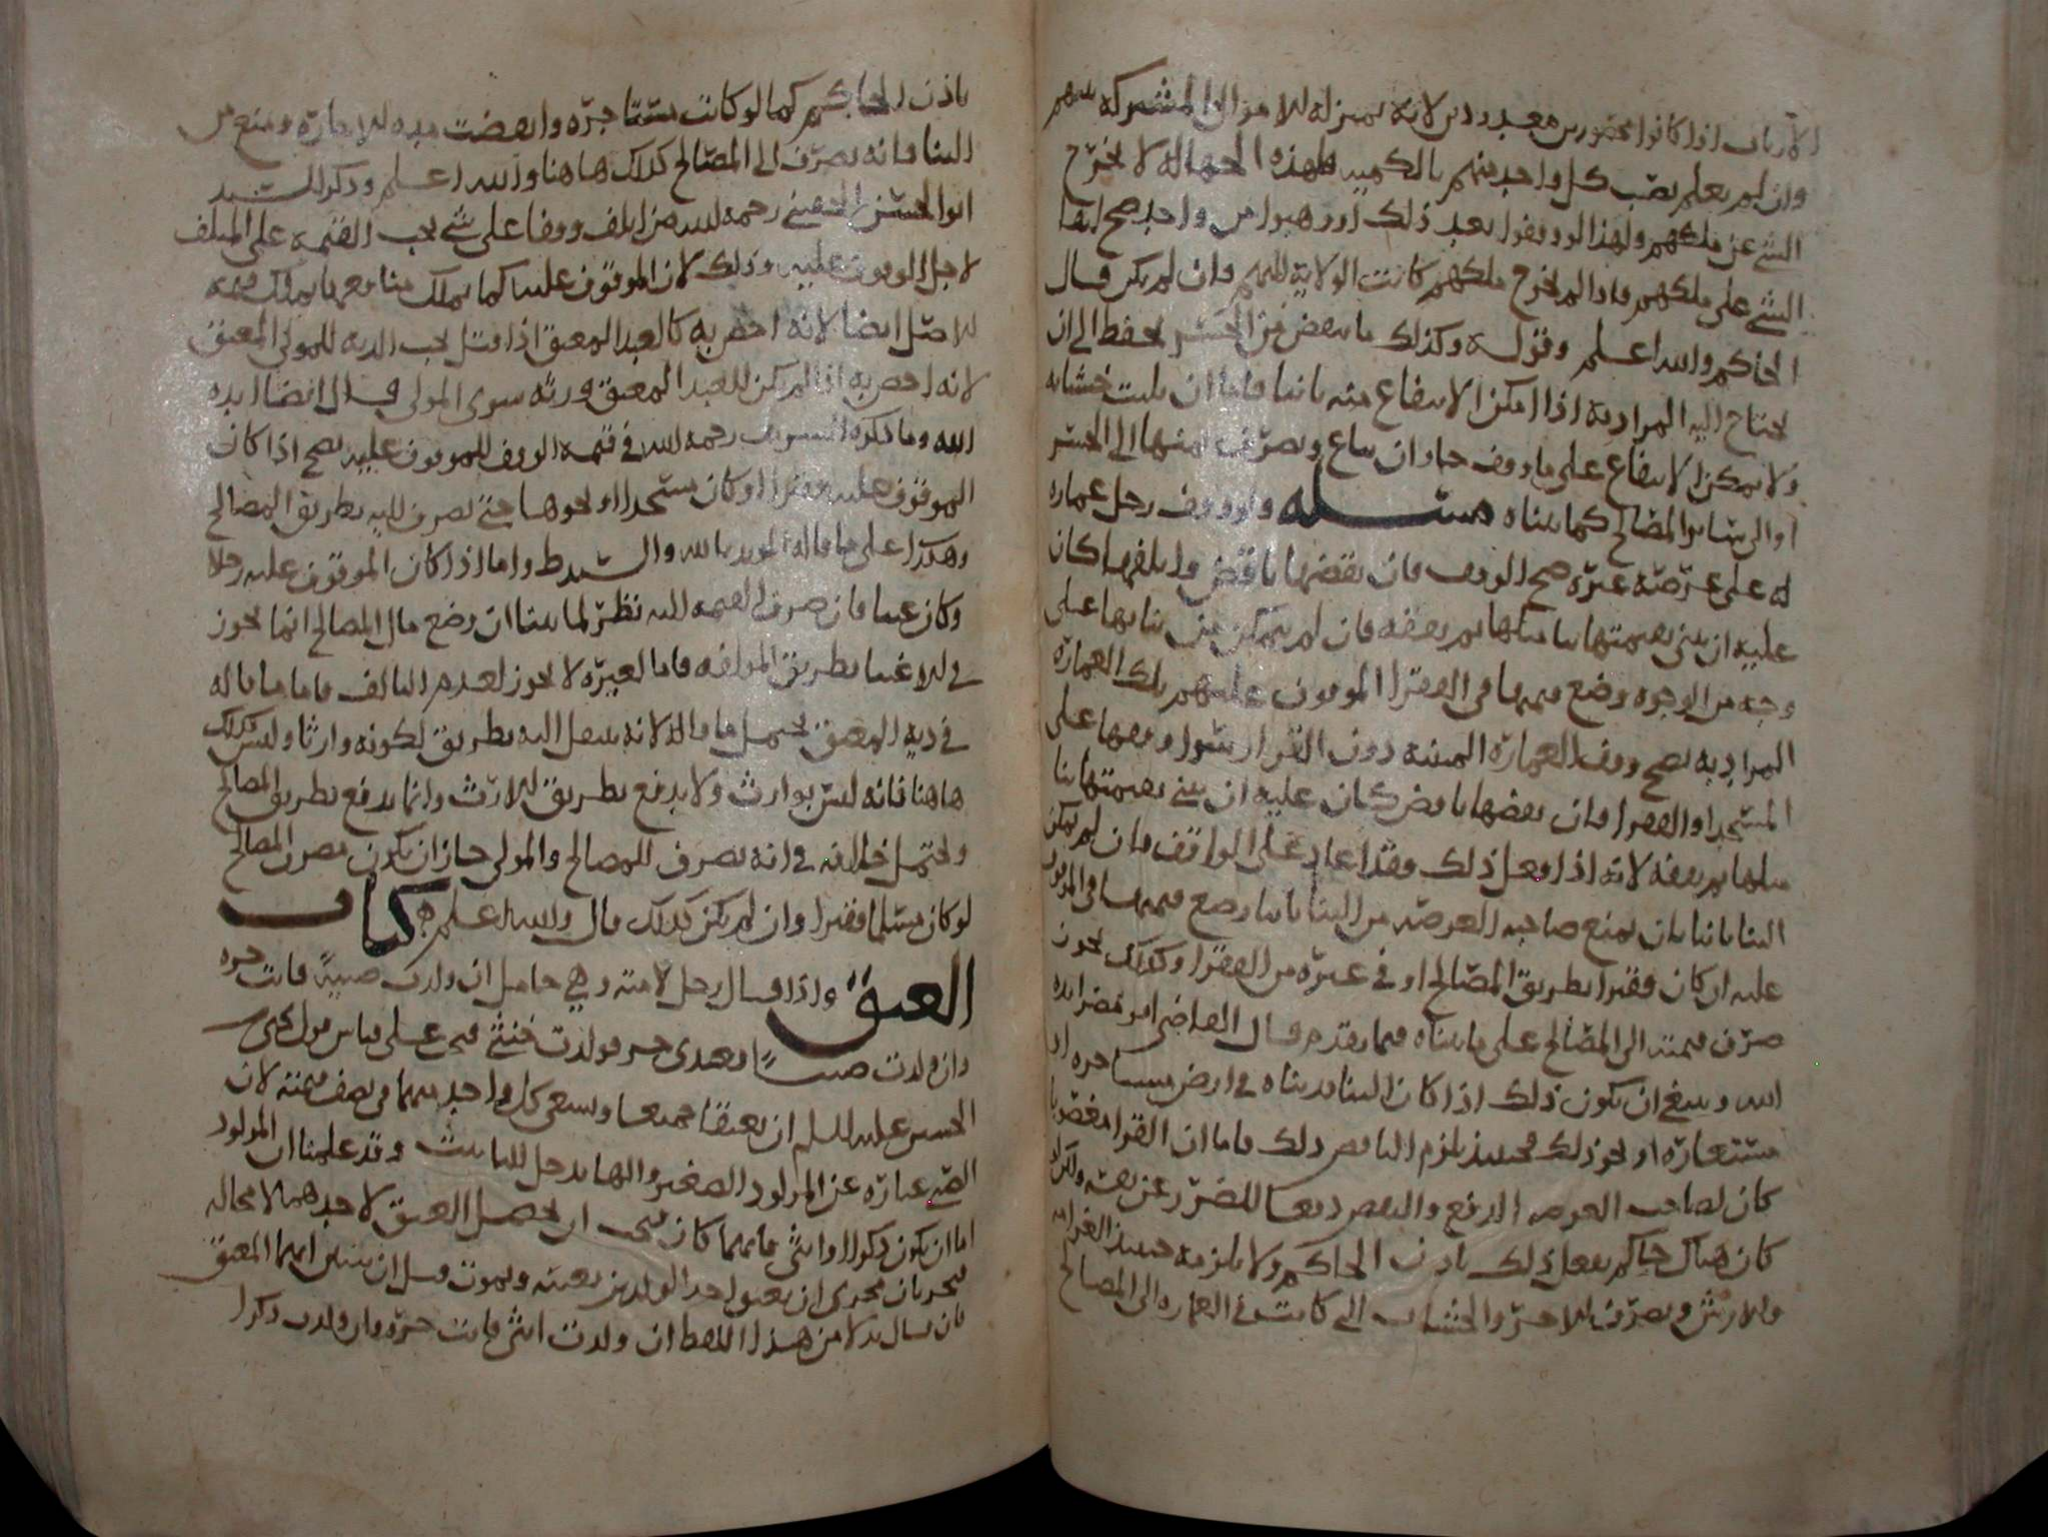 الارباب اذا كانوا محصورين معدودين لانه بمنزله للاموال المشتركه بينهم
وان لم يعلم نصيب كل واحد منهم بالكميه فهذه الجهاله لا تخرج
الشي عن ملكهم ولهذا لو وقفوا بعد ذلك او وهبوا من واحد صح ايضا
الشي على ملكهم واذا لم يخرج ملكهم كانت الولاية اليهم وان لم يكن قال
الحاكم والله اعلم وقوله وكذلك ما ينقض من الجسر يحفظ الى ان
يحتاج اليه المراد به اذا امكن الانتفاع منه ثانيا فاما ان بليت خشابه
ولا يمكن الانتفاع على ما وقف جاز ان يباع ويصرف ثمنها الى الجسر
او الى سائر المصالح كما بيناه مسله ولو وقف رجل عماره
له على عرصة غيره صح الوقف فان نقضها ناقض واتلفها كان
عليه ان يبني بقيمتها بنا مثلها ثم يقفه فان لم يتمكن من بنايها على
وجه من الوجوه وضع قيمتها في الفقرا الموقوف عليهم بتلك العمارة
المراد به يصح وقف العمارة المبنيه دون القرار سوا وقفها على
المسجد او الفقرا فان نقضها ناقض كان عليه ان يبني بقيمتها بنا
مثلها ثم يقفه لانه اذا فعل ذلك فقد اعاد على الواقف فان لم يمكن
البنا ثانيا بان يمنع صاحب العرصه من البنا ثانيا وضع قيمتها في الموقوف
عليه ان كان فقيرا بطريق المصالح او في غيره من الفقرا وكذلك يجوز
صرف قيمته الى المصالح على ما بيناه فيما تقدم قال القاضي ابو مضر ايده
الله وينبغي ان يكون ذلك اذا كان البنا بدبناه في ارض مستاجره او
مستعارة او نحو ذلك فحينئذ يلزم الناقض ذلك فاما ان القرار مغصوبا
كان لصاحب العرصه الرفع والنقض دفعا للضرر عن نفسه ولكن لو
كان هناك حاكم يفعل ذلك باذن الحاكم ولا يلزمه حينئذ الغرامه
وللارش ويصرف للاجر والخشاب التي كانت في العماره الى المصالح
باذن الحاكم كما لو كانت مستاجره وانقضت مده للاجارة ومنع من
البنا فانه يصرف الى المصالح كذلك هاهنا والله اعلم وذكر السيد
ابوالحسن الحسني رحمه الله من اتلف وقفا على شي يجب القيمه على المتلف
لاجل الموقوف عليه وذلك لان الموقوف عليه كما يملك منافعها يملك قيمه
للاصل ايضا لانه اخص به كالعبد المعتق اذا قتل يجب الديه للمولى المعتق
لانه اخص به اذا لم يكن للعبد المعتق ورثه سوى المولى قال ايضا ايده
الله وما ذكره الشريف رحمه الله في قيمه الوقف للموقوف عليه يصح اذا كان
الموقوف عليه فقيرا او كان مسجدا او نحوها حتى يصرف اليه بطريق المصالح
وهكذا على ما قاله المويد بالله والسيد ط واما اذا كان الموقوف عليه رجلا
وكان غنيا فان صرف القيمه اليه نظر لما بينا ان وضع مال المصالح انما يجوز
في للاغنيا بطريق المولفه فاما لغيره لا يجوز لعدم التالف فاما ما قاله
في ديه المعتق يحتمل ما قاله لانه ينتقل اليه بطريق لكونه وارثا وليس كذلك
هاهنا فانه ليس بوارث ولا يدفع بطريق للارث وانما يدفع بطريق المصالح
ويحتمل خلافه في انه يصرف للمصالح والمولى جاز ان يكون مصرف المصالح
لو كان مسلما فقيرا وان لم يكن كذلك قال والله اعلم كتاب
العتق واذا قال رجل لامته وهي حامل ان ولدت صبية فانت حره
وان ولدت صبيا فعبدي حر فولدت خنثى فيجي على قياس قول يحيى
الحسين عليه السلم ان يعتقا جميعا ويسعى كل واحد منهما في نصف قيمته لان
الصبي عبارة عن المولود الصغير والها يدخل للتانيث وقد علمنا ان المولود
اما ان يكون ذكرا او انثى فايهما كان يجب ان يحصل العتق لاحدهما لا محاله
فيجريان مجرى ان يعتق احد الولدين بعينه ويموت قبل ان يتبين ايهما المعتق
فان قال بدلا من هذا اللفظ ان ولدت انثى فانت حره وان ولدت ذكرا